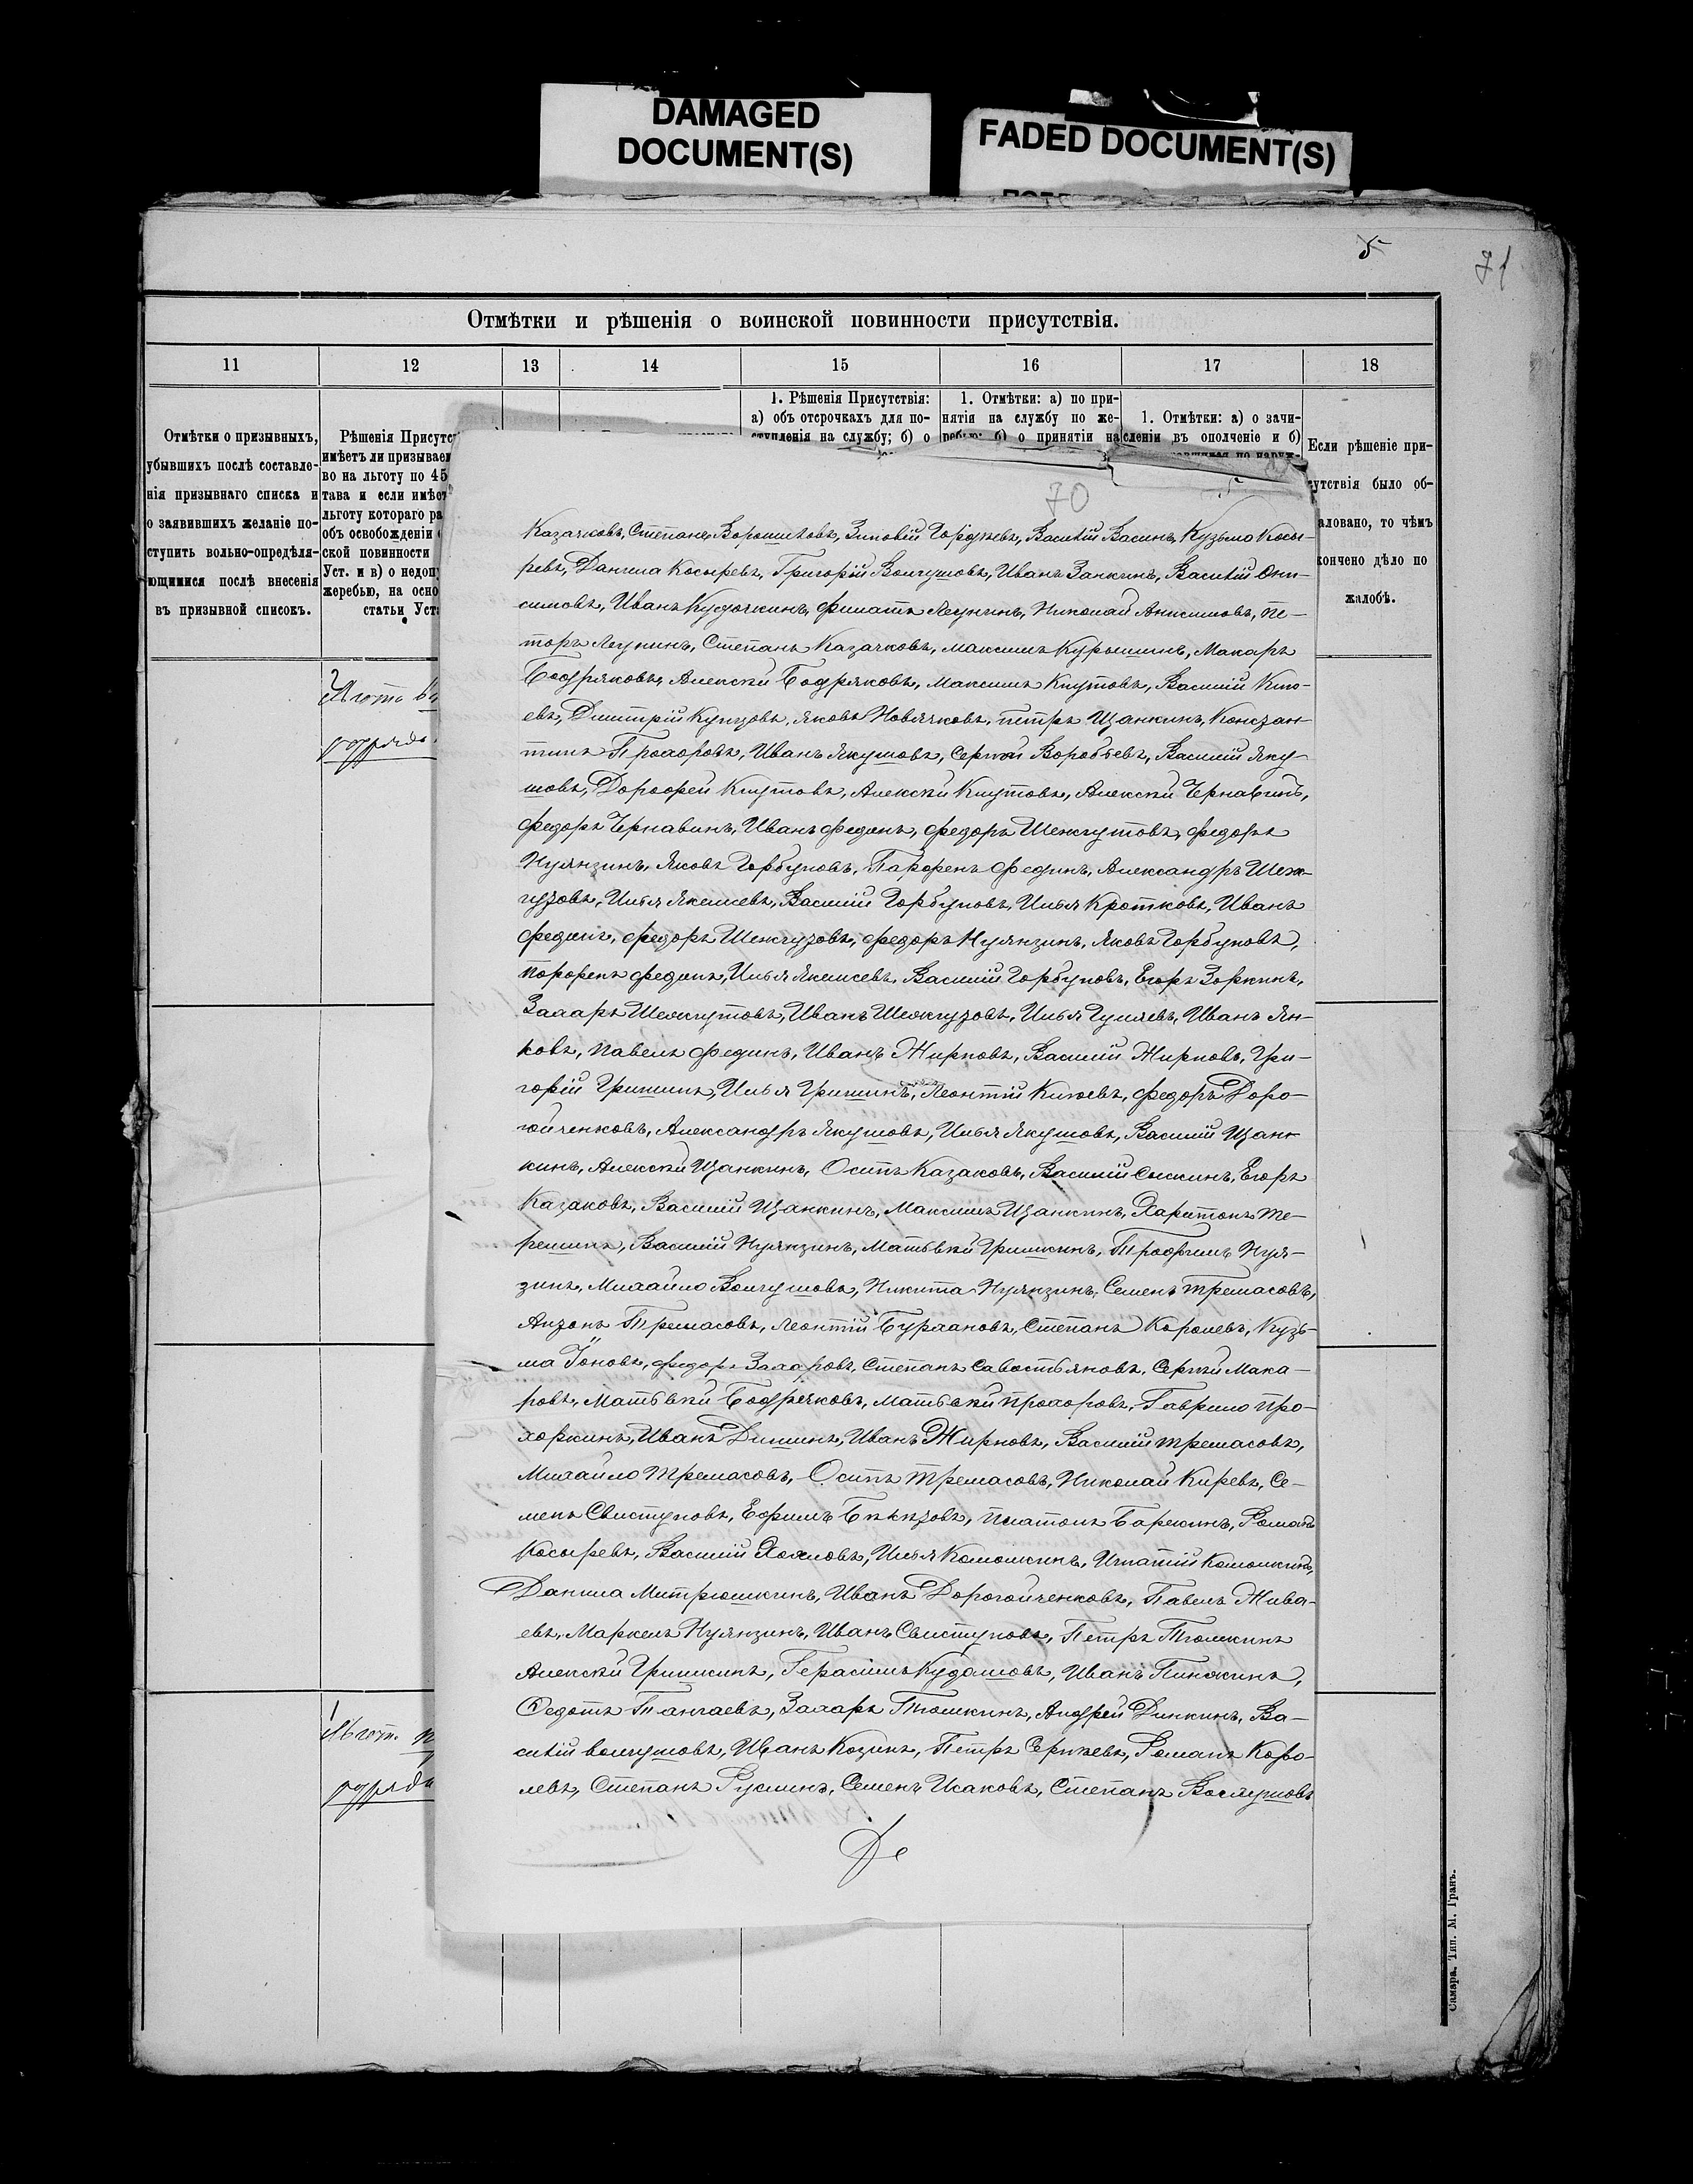 DAMAGED
DOCUMENT(S)
FADED DOCUMENT(S)
5
71
Отмѣтки и рѣшенія о воинской повинности присутствія.
11 12 13 14 15 16 17 18
Отмѣтки о призывныхъ,
убывшихъ послѣ составле-
нія призывнаго списка и
о заявившихъ желаніе по-
ступить вольно-опредѣля-
ющимися послѣ внесенія
въ призывной списокъ.
Рѣшенія Присутс
имѣетъ ли призывае
во на льготу по 45
тава и если имѣет
льготу котораго ра
объ освобожденіи
ской повинности
Уст. и в) о недоп
жеребью, на осно
статьи Уст
1. Рѣшенія Присутствія:
а) объ отсрочкахъ для по-
ступленія на службу; б) о
1. Отмѣтки: а) по при-
нятія на службу по же-
ребью; б) о принятіи на
1. Отмѣтки: а) о зачи-
сленіи въ ополченіе и б)
Если рѣшеніе при-
сутствія было об-
аловано, то чѣмъ
кончено дѣло по
жалобѣ.
70
Казачковъ, Степанъ Ворошиловъ, Зиновій Гордѣевъ, Василій Васинъ, Кузьма Косы-
ревъ, Данила Косыревъ, Григорій Волгушовъ, Иванъ Занкинъ, Василій Они-
симовъ, Иванъ Кудочкинъ, Филатъ Леункинъ, Николай Анисимовъ, Пе-
торъ Леункинъ, Степанъ Казачковъ, Максимъ Курышинъ, Макаръ
Бодряковъ, Алексѣй Бодряковъ, Максимъ Кнутовъ, Василій Кню-
евъ, Дмитрій Кунзовъ, Яковъ Новячковъ, Петръ Щанкинъ, Констан-
тинъ Прохоровъ, Иванъ Якушовъ, Сергѣй Воробьевъ, Василій Яку-
шовъ, Дорофей Кнутовъ, Алексѣй Кнутовъ, Алексѣй Чернавинъ,
Федоръ Чернавинъ, Иванъ Фединъ, Федоръ Шенгутовъ, Федоръ
Нулянзинъ, Яковъ Горбуновъ, Парфенъ Фединъ, Александръ Шеж-
гузовъ, Илья Якешевъ, Василій Горбуновъ, Илья Кротковъ, Иванъ
Фединъ, Федоръ Шенгузовъ, Федоръ Нулянзинъ, Яковъ Горбуновъ,
Порфенъ Фединъ, Илья Якеисевъ, Василій Горбуновъ, Егоръ Зоркинъ,
Захаръ Шежгутовъ, Иванъ Шежгузовъ, Илья Гуляевъ, Иванъ Ян-
ковъ, Павелъ Фединъ, Иванъ Жирновъ, Василій Жирновъ, Гри-
горій Гришинъ, Илья Гришинъ, Леонтій Кижевъ, Федоръ Доро-
гойченковъ, Александръ Якушовъ, Илья Якушовъ, Василій Щан-
кинъ, Алексѣй Щанкинъ, Осипъ Казаковъ, Василій Сыскинъ, Егоръ
Казаковъ, Василій Щанкинъ, Максимъ Щанкинъ, Харитонъ Те-
решинъ, Василій Нулянзинъ, Матвѣй Гришкинъ, Трофимъ Нуля-
зинъ, Михайло Волгушовъ, Никита Нулянзинъ, Семенъ Тремасовъ,
Антонъ Тремасовъ, Леонтій Бурлановъ, Степанъ Королевъ, Кузь-
ма Іоновъ, Федоръ Захаровъ, Степанъ Савостьяновъ, Сергѣй Мака-
ровъ, Матвѣй Бодрячковъ, Матвѣй Прохоровъ, Гаврило Про-
хоркинъ, Иванъ Дишинъ, Иванъ Жирновъ, Василій Тремасовъ,
Михайло Тремасовъ, Осипъ Тремасовъ, Николай Киревъ, Се-
менъ Свистуновъ, Ефимъ Бѣкзовъ, Платонъ Барекинъ, Романъ
Косыревъ, Василій Холмовъ, Илья Комошкинъ, Игнатій Комошкинъ,
Данила Митрюшкинъ, Иванъ Дорогойченковъ, Павелъ Жива-
евъ, Маркелъ Нулянзинъ, Иванъ Свистуновъ, Петръ Тюшкинъ
Алексѣй Гришкинъ, Герасимъ Кудашовъ, Иванъ Пинжкинъ,
Федотъ Тангаевъ, Захаръ Тюшкинъ, Андрей Динкинъ, Ва-
силій Волгушовъ, Иванъ Козинъ, Петръ Сергѣевъ, Романъ Коро-
левъ, Степанъ Руслинъ, Семенъ Исаковъ, Степанъ Воргушовъ
Льготн.
разряда
Самара. Тип. М. Гранъ.